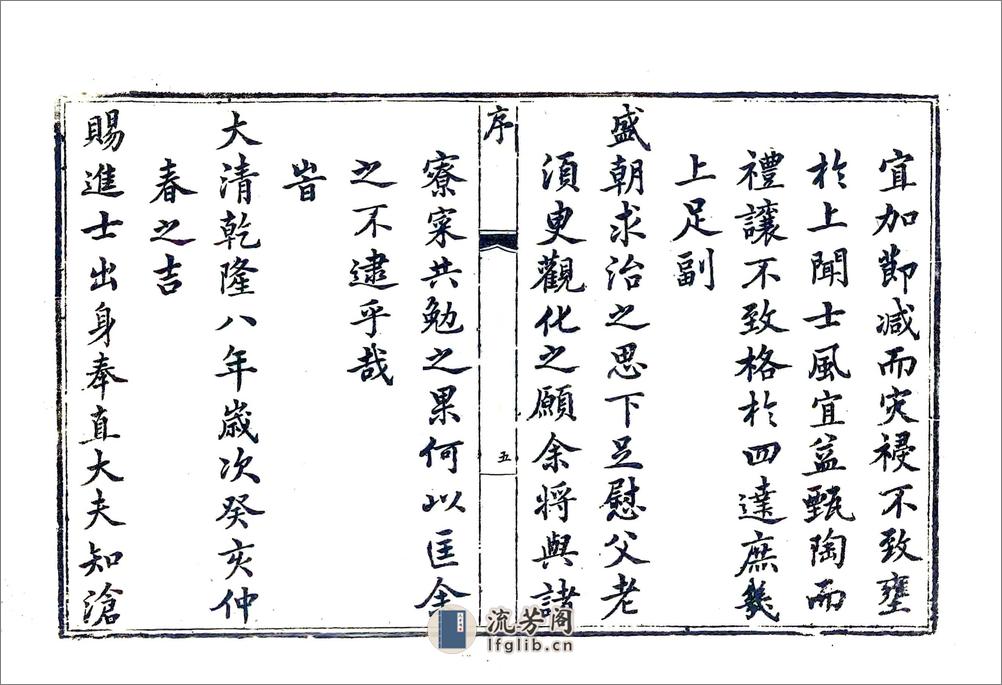 宜加節減而灾祲不致壅
於上聞士風宜益甄陶而
禮讓不致格於四達庶㡬
上足副
盛朝求治之思下足慰父老
須臾觀化之願余將與諸
序
五
寮寀共勉之果何以匡余
之不逮乎哉
旹
大清乾隆八年歲次癸亥仲
春之吉
賜進士出身奉直大夫知滄
流芳阁
lfglib.cn